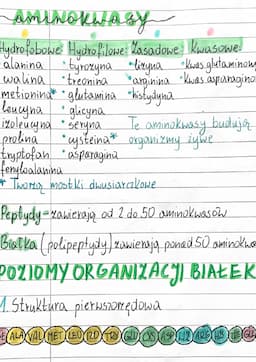 AMINOKWASY
Hydrofobowe Hydrofilowe Zasadowe Kwasowe
alanina • tyrozyna • lizyna • kwas glutaminowy
walina • treonina • arginina • kwas asparagino
metionina* • glutamina • histydyna
leucyna • glicyna
izoleucyna • seryna Te aminokwasy budują
prolina • cysteina* organizmy żywe
tryptofan • asparagina
fenyloalanina
* Tworzą mostki dwusiarczkowe
Peptydy - zawierają od 2 do 50 aminokwasów
Białka (polipeptydy) zawierają ponad 50 aminokwa
POZIOMY ORGANIZACJI BIAŁEK
1. Struktura pierwszorzędowa
ALA VAL MET LEU PRO TRY GLI CYS ASP LIZ ARG HIS